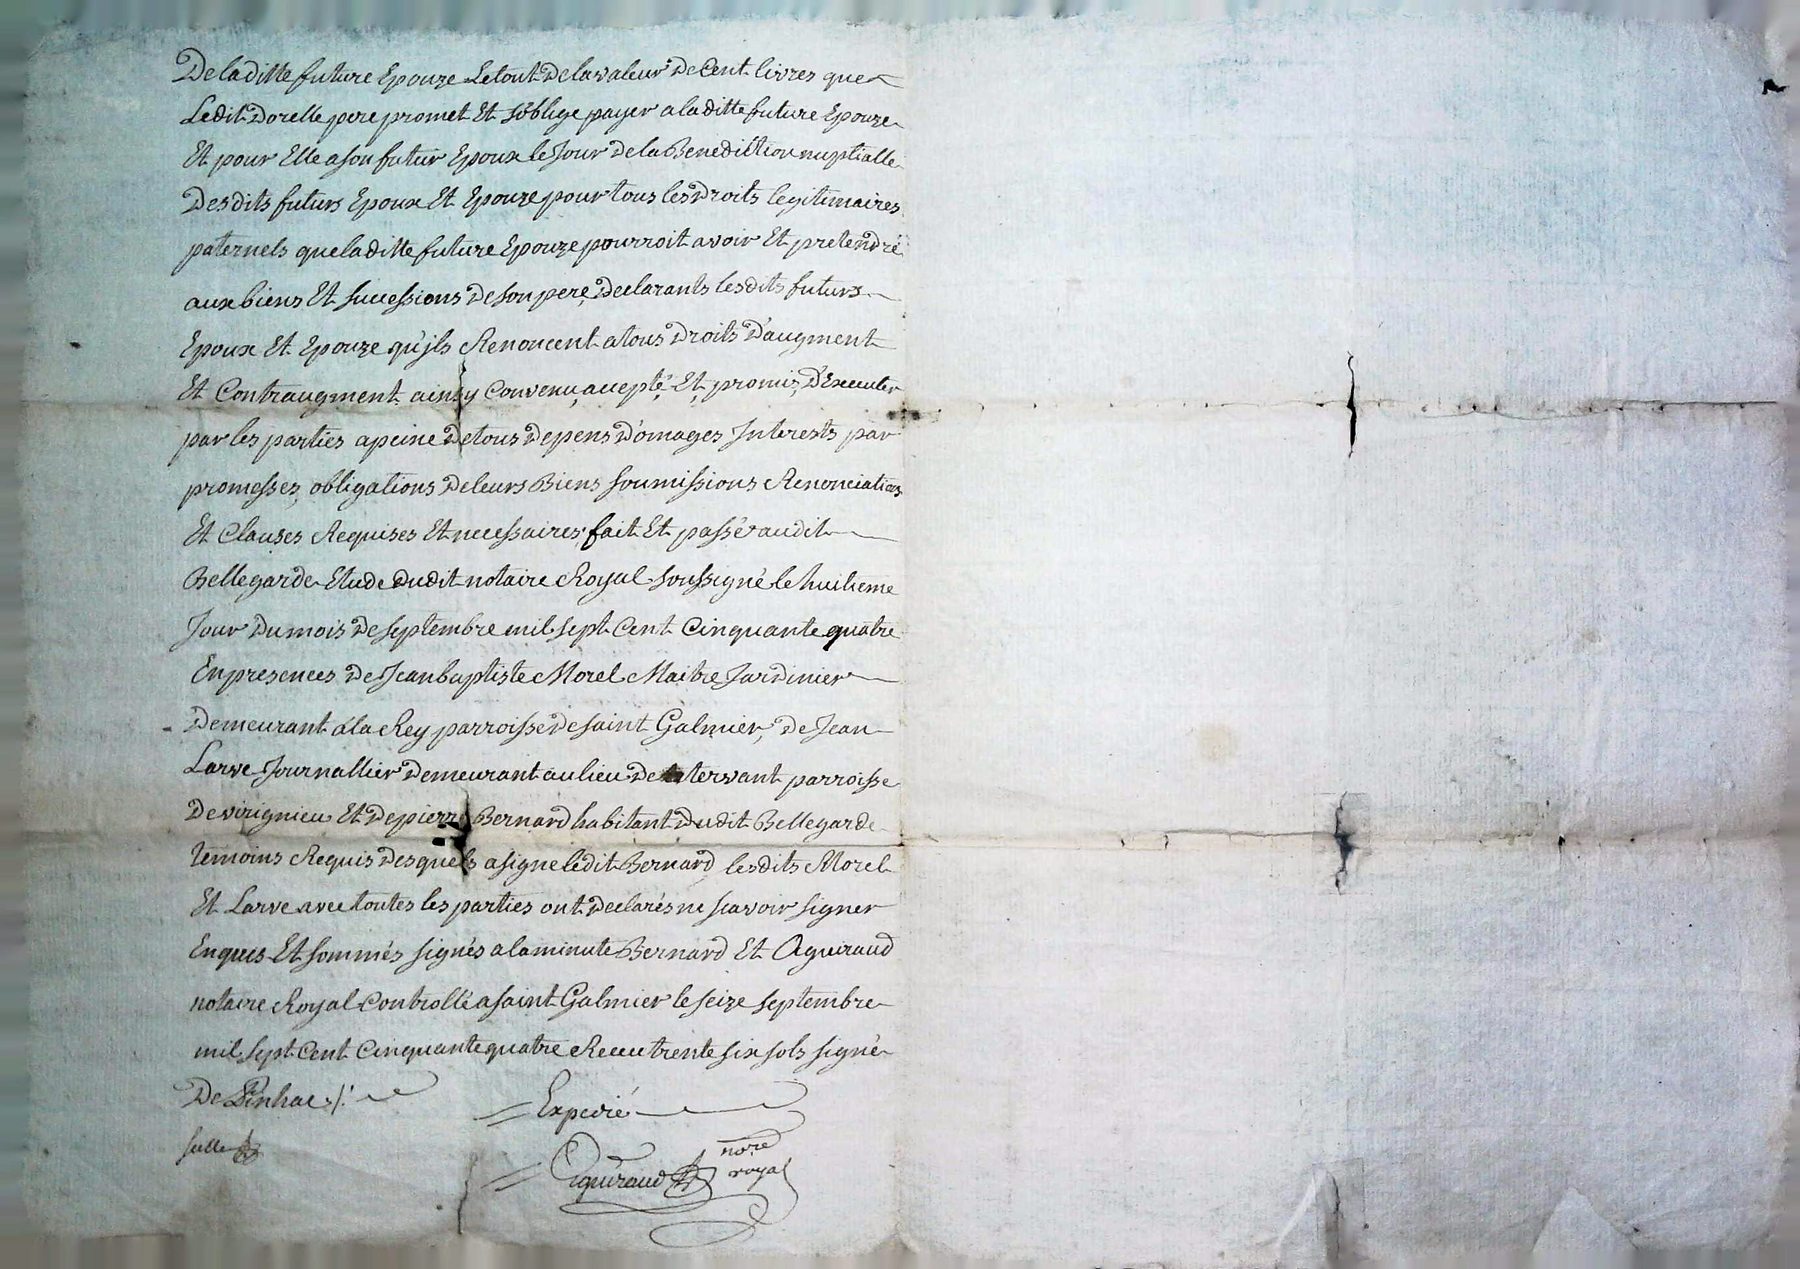 De la ditte future Epouze Le tout De la valeur De Cent livres que
Ledit Dorelle pere promet Et s'oblige payer a la ditte future Epouze
Et pour Elle a son futur Epoux le Jour De la Benediction nuptialle
Des dits futurs Epoux Et Epouze pour tous les Droits legitimaires
paternels que la ditte future Epouze pourroit avoir Et pretendre
aux biens Et successions De son pere, Declarants les dits futurs
Epoux Et Epouze qu'ils Renoncent a tous Droits D'augment
Et Contraugment ainsy Convenu, accepté, Et, promis, D'Executer
par les parties a peine De tous Depens D'omages Interests par
promesses, obligations De leurs Biens soumissions Renonciations
Et Clauses Requises Et necessaires, fait Et passé audit
Bellegarde Etude Dudit notaire Royal soussigné le huitieme
Jour Du mois De septembre mil sept Cent Cinquante quatre
En presences De Jean baptiste Morel Maitre Jardinier
Demeurant a la Rey parroisse De saint Galmier, De Jean
Larve Journallier Demeurant au lieu De tervant parroisse
De virignieu Et De pierre Bernard habitant Dudit Bellegarde
temoins Requis Desquels a signe ledit Bernard, les dits Morel
Et Larve avec toutes les parties ont Declarés ne scavoir signer
Enquis Et sommés signés a la minute Bernard Et Aguiraud
notaire Royal Controllé a saint Galmier le seize septembre
mil sept Cent Cinquante quatre Receu trente six sols signé
De Pinhac ./.
Expedié
Aguiraud nore royal